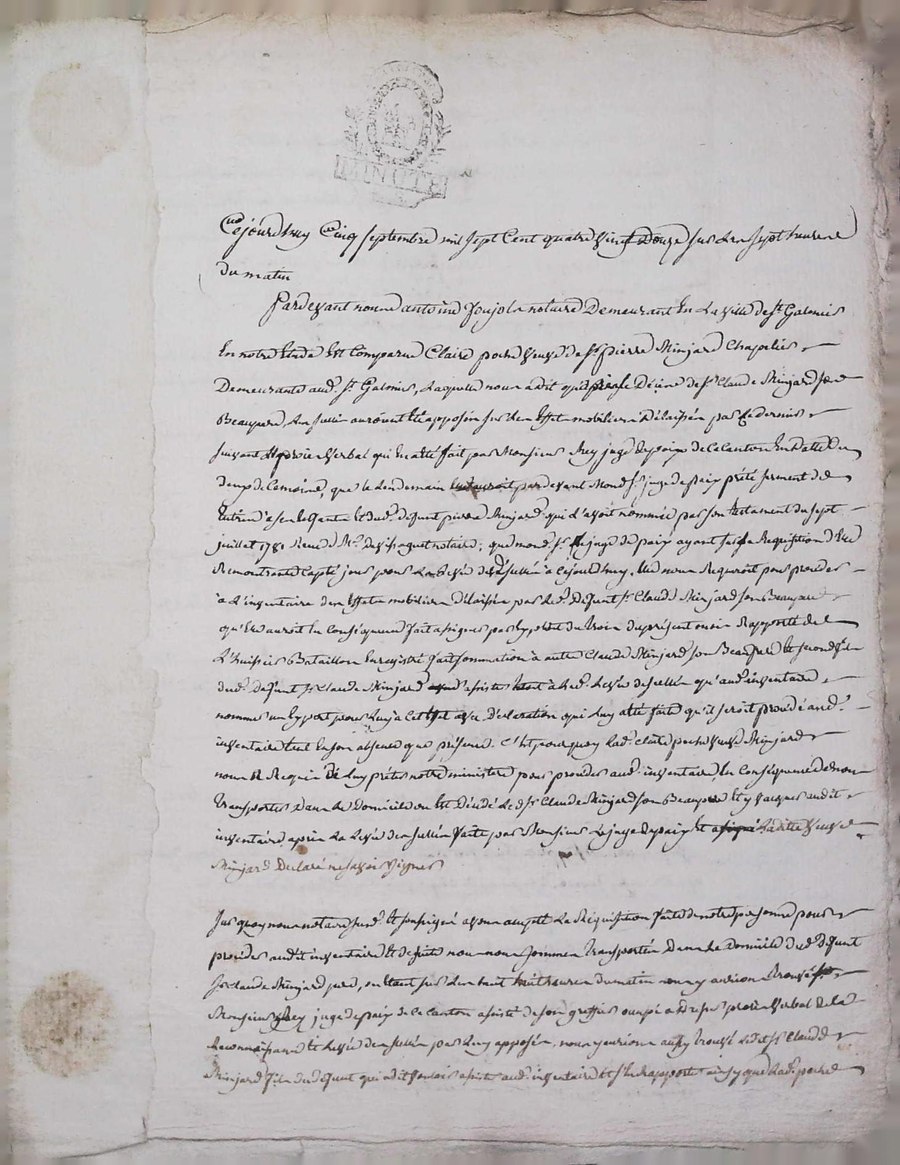 MINUTE
Cejourdhuy Cinq septembre mil sept Cent quatre vingt Douze sur les sept heures
du matin
Pardevant nous antoine notaire Demeurant En la ville de st Galmier
En notre Etude Est Comparue Claire poché veuve de sr pierre Minjard Chapelier
Demeurante aud. st Galmier, Laquelle nous a dit que Décès de sr Claude Minjard son
Beaupere, Les scellés auroient été apposés sur les Effets mobiliers Délaissés par Ce dernier
suivant verbal qui En a été fait par Monsieur Rey juge de paix de Ce Canton En datte du
deux de Ce mois, que le Lendemain pardevant Mond. sr juge de paix prêté serment de
du défunt pierre Minjard qui l'avoit nommée par son testament du sept
juillet 1781 Reçu Me notaire, que mond. sr juge de paix ayant sur sa Requisition d'Elle
Remontrante Capté jour pour La Levée des scellés à Cejourdhuy, Elle nous Requeroit pour proceder
à L'inventaire des Effets mobiliers Délaissés par Led. Défunt sr Claude Minjard son Beaupere
qu'Elle auroit En Conséquence fait assigner par Exploit du trois du présent mois Rapporté de
L'huissier Bataillon Enregistré sommation à autre Claude Minjard son Beaufrere Et second fils
dud. defunt sr Claude Minjard assister tant à Lad. Levée de scellés qu'aud. inventaire
nommer un Expert pour Luy à Cet Effet avec Déclaration qui Luy a été faite qu'il seroit procédé aud.
inventaire tant En son absence que présence. C'est pourquoy Lad. Claire poché veuve Minjard
nous a Requis De Luy prêter notre ministere pour proceder aud. inventaire, En Conséquence de nous
transporter Dans Le Domicile ou Est Décédé Led. sr Claude Minjard son Beaupere Et y vaquer audit
inventaire après La Levée des scellés faite par Monsieur Le juge de paix Et a signé Laditte veuve
Minjard Declaré ne savoir signer
Sur quoy nous notaire susd. Et soussigné avons accepté La Réquisition faite de notre personne pour
proceder audit inventaire Et de suite nous nous sommes transportés Dans Le Domicile dud. défunt
sr Claude Minjard pere, ou Etant sur Les huit heures du matin nous y aurions trouvé
Monsieur Rey juge de paix de Ce Canton assisté de son greffier occupé a Dresser procès verbal de La
Reconnoissance Et Levée des scellés par Luy apposés, nous y aurions aussy trouvé Ledit sr Claude
Minjard fils du défunt qui a dit vouloir assister aud. inventaire ainsy que Lad. poché